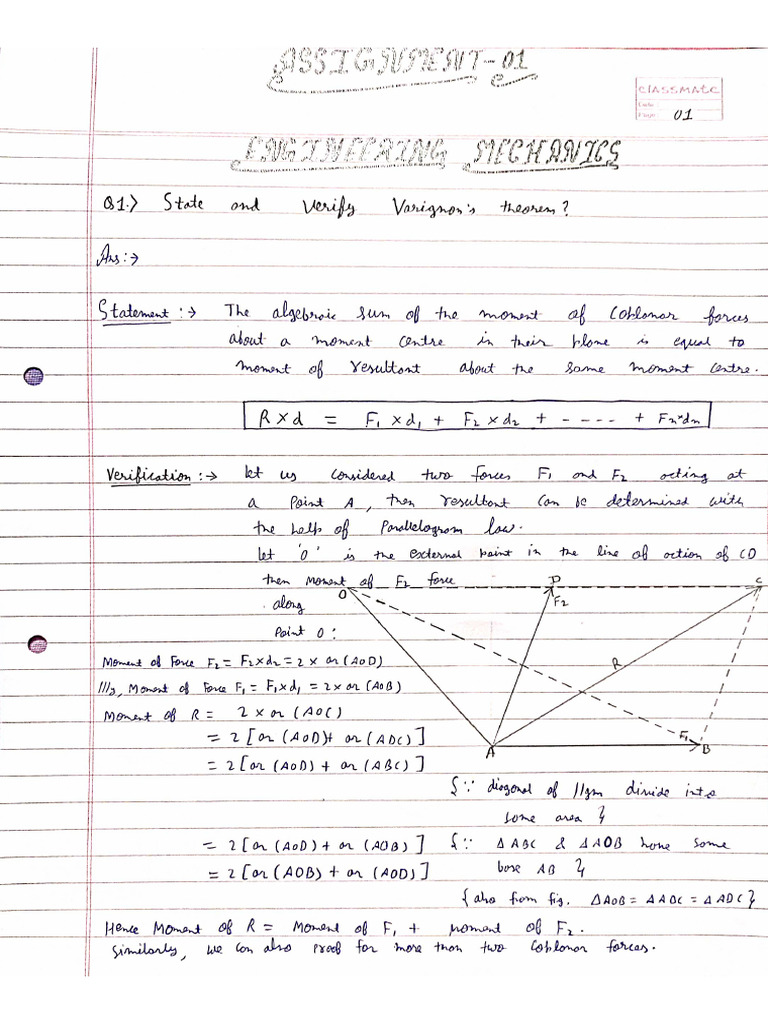 ASSIGNMENT-01
CLASSMATE
Date :
Page : 01
ENGINEERING MECHANICS
Q1.> State and Verify Varignon's theorem?
Ans :→
Statement :→ The algebraic sum of the moment of Coplanar forces
about a moment centre in their plane is equal to
moment of resultant about the same moment centre.
R × d = F₁ × d₁ + F₂ × d₂ + - - - - + Fn*dn
Verification :→ let us considered two forces F₁ and F₂ acting at
a Point A, then resultant can be determined with
the help of Parallelogram law.
let 'O' is the external point in the line of action of CD
then Moment of F₂ force
along
Point O :
O D C
F₂
R
A F₁ B
Moment of Force F₂ = F₂×d₂ = 2 × ar (AOD)
///ly, Moment of Force F₁ = F₁×d₁ = 2×ar (AOB)
Moment of R = 2 × ar (AOC)
= 2 [ar (AOD)+ ar (ADC)]
= 2[ar (AOD) + ar (ABC)]
{∵ diagonal of //gm divide into
same area }
= 2 [ar (AOD) + ar (AOB)] {∵ Δ ABC & Δ AOB have same
base AB }
= 2 [ar (AOB) + ar (AOD)]
{also from fig. ΔAOB = ΔADC = ΔADC}
Hence Moment of R = Moment of F₁ + Moment of F₂.
Similarly, we can also proof for more than two Coplanar forces.